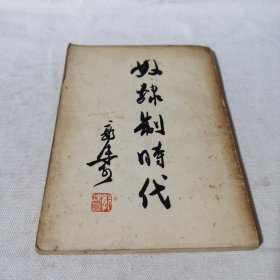 奴隸制時代
郭沫若